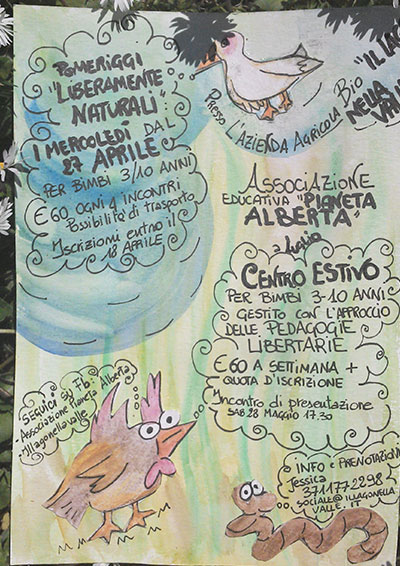 POMERIGGI
"LIBERAMENTE
NATURALI":
I MERCOLEDÌ DAL
27 APRILE
PER BIMBI 3/10 ANNI
€ 60 OGNI 4 INCONTRI
Possibilità di trasporto
Iscrizioni entro il
18 APRILE
PRESSO L'AZIENDA AGRICOLA BIO
"IL LAGO
NELLA VALLE"
ASSOCIAZIONE
EDUCATIVA "PIANETA
ALBERTA"
a luglio
CENTRO ESTIVO
PER BIMBI 3-10 ANNI
GESTITO CON L'APPROCCIO
DELLE PEDAGOGIE
LIBERTARIE
€ 60 A SETTIMANA +
QUOTA D'ISCRIZIONE
Incontro di presentazione
SAB 28 MAGGIO 17.30
SEGUICI SU Fb:
-Associazione Pianeta Alberta
-Illagonellavalle
INFO E PRENOTAZIONI
Jessica
3711772298
SOCIALE@ILLAGONELLA
VALLE.IT